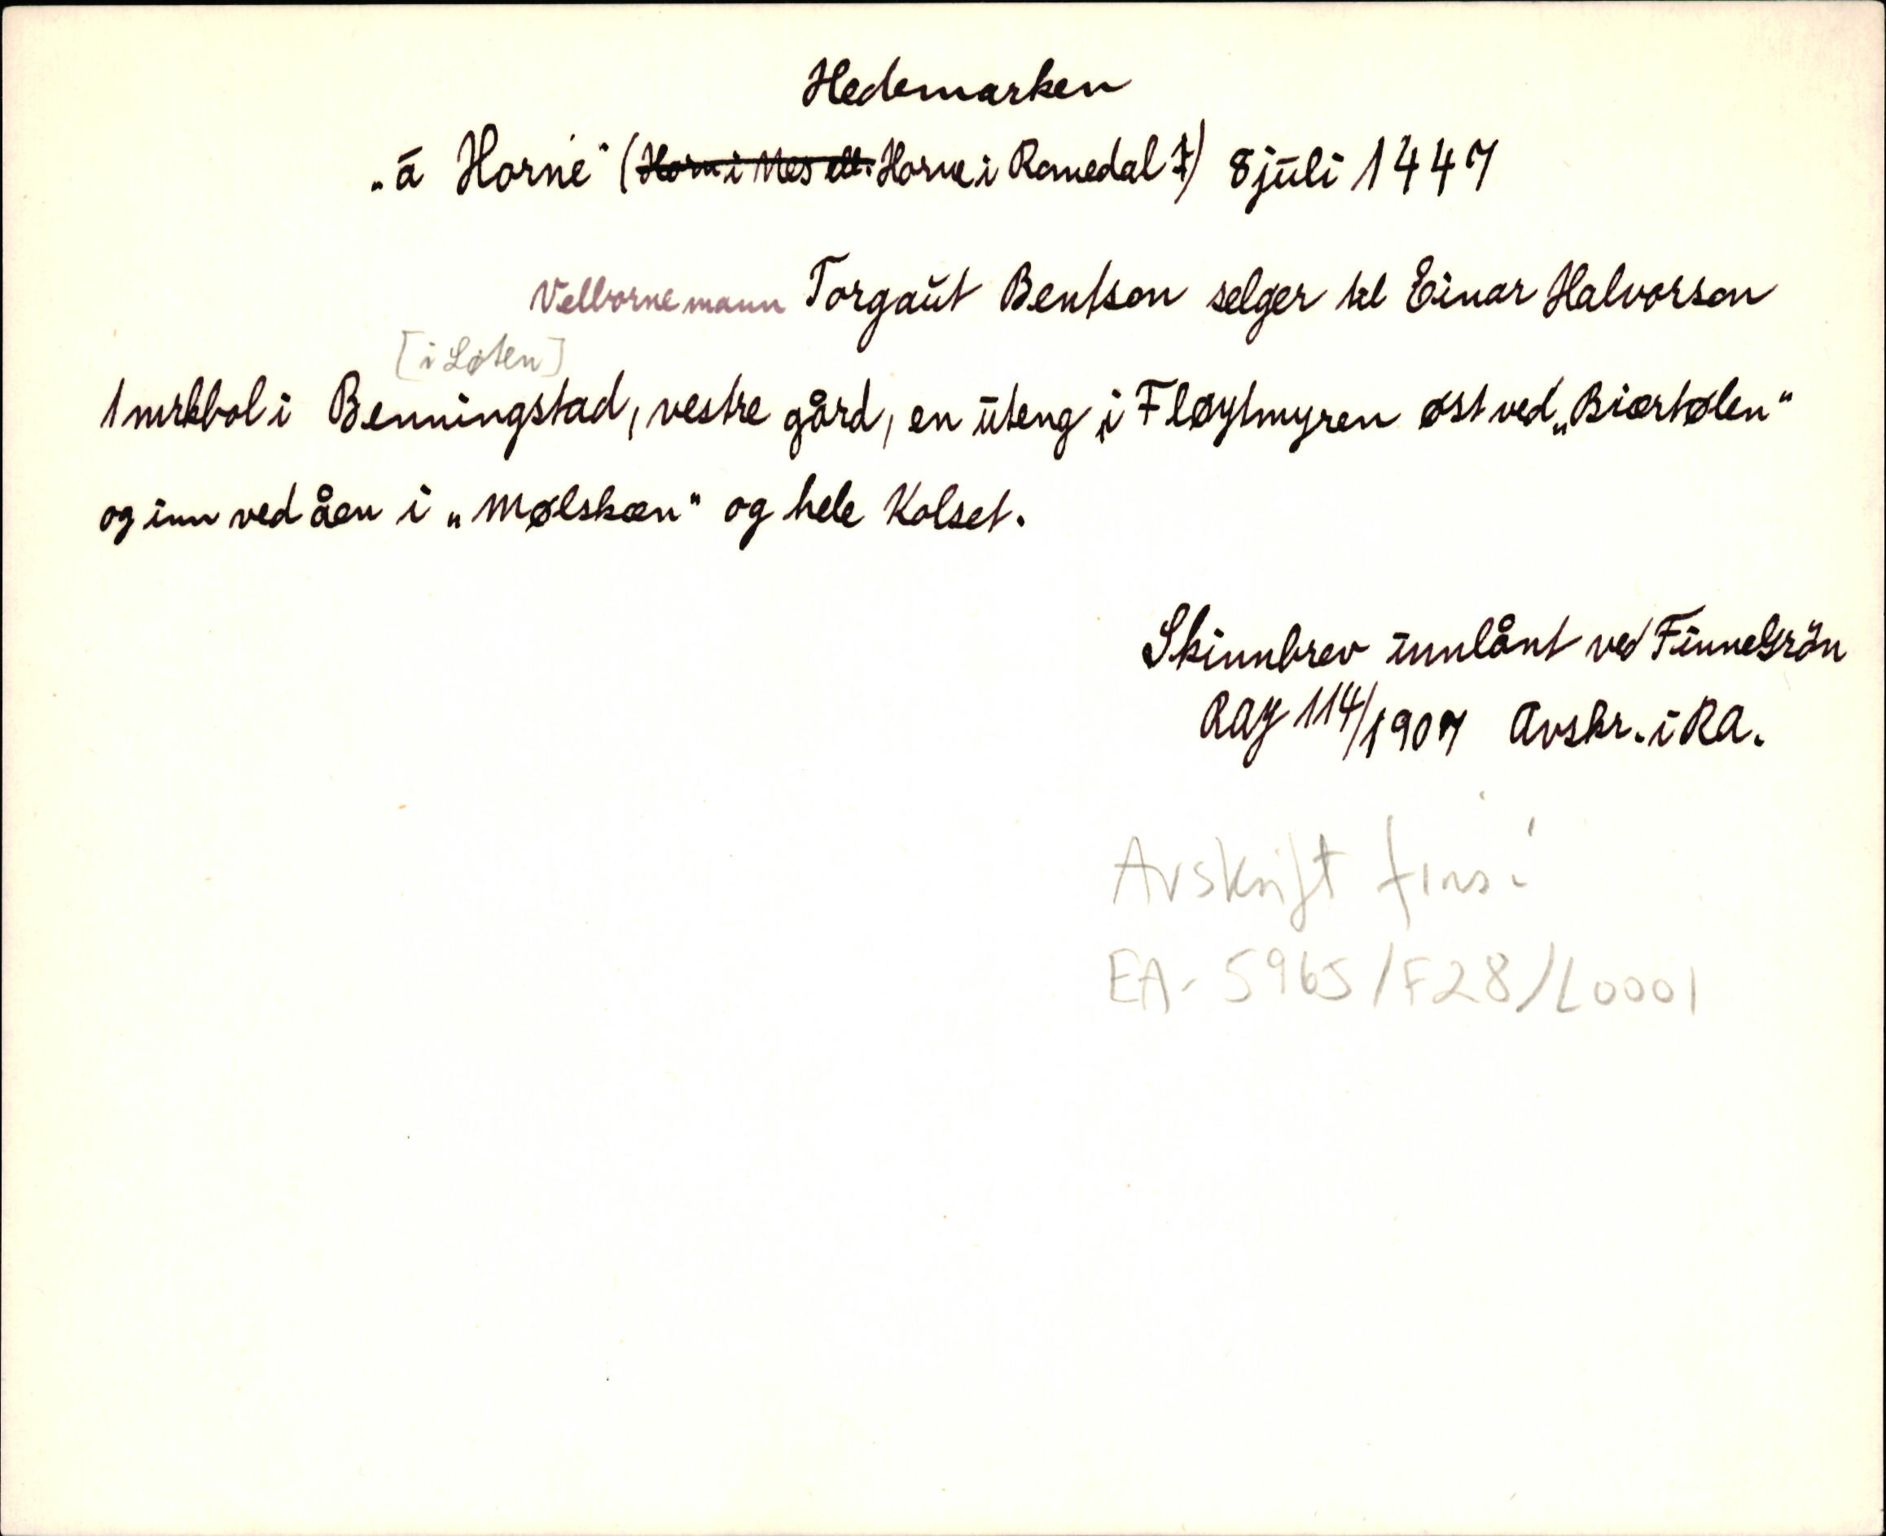 Hedemarken
„á Horne" (Horn i Nes ell. Horne i Romedal ?) 8 juli 1447
Velborne mann Torgaut Bentson selger til Einar Halvorson
[i Løten]
1 mrkbol i Benningstad, vestre gård, en uteng i Fløytmyren øst ved „Biærtølen"
og inn ved åen i „Mølskæn" og hele Kolset.
Skinnbrev innlånt ved Finne Grön
RAJ 114/1907 Avskr. i RA.
Avskrift fins i
EA- 5965/F28/L0001